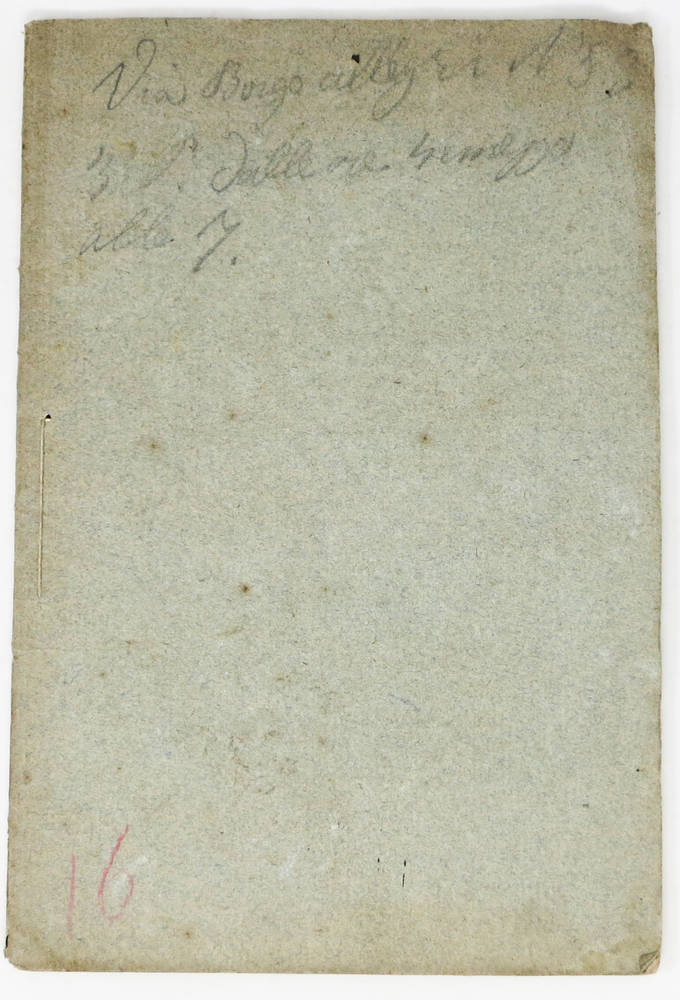 Via Borgo allegri N 53
3° P. dalle ore 4 e mezzo
alle 7.
16